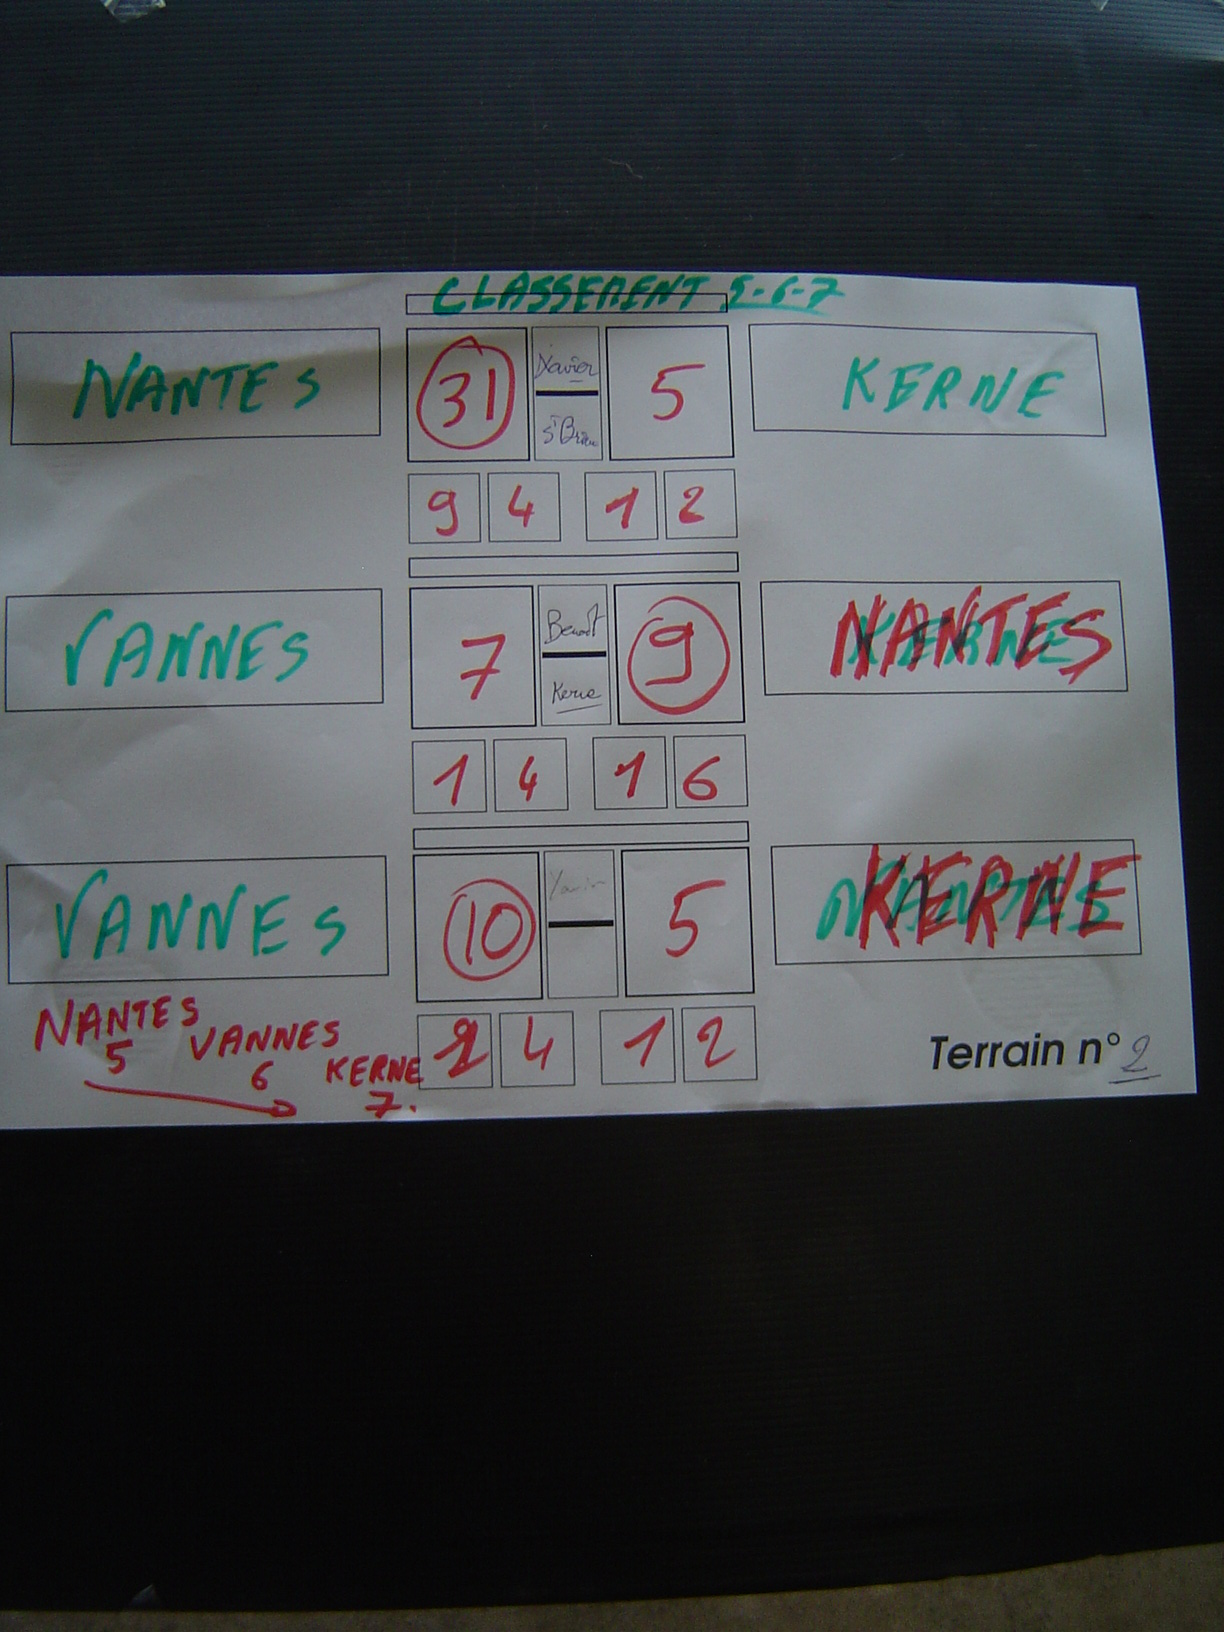 CLASSEMENT 5-6-7
NANTES 31 Xavier 5 KERNE
St Brieuc
9 4 1 2
VANNES 7 Benoit 9 NANTES
Kerne
1 4 1 6
VANNES 10 5 KERNE
NANTES VANNES KERNE 2 4 1 2
5 6 7.
Terrain n° 2